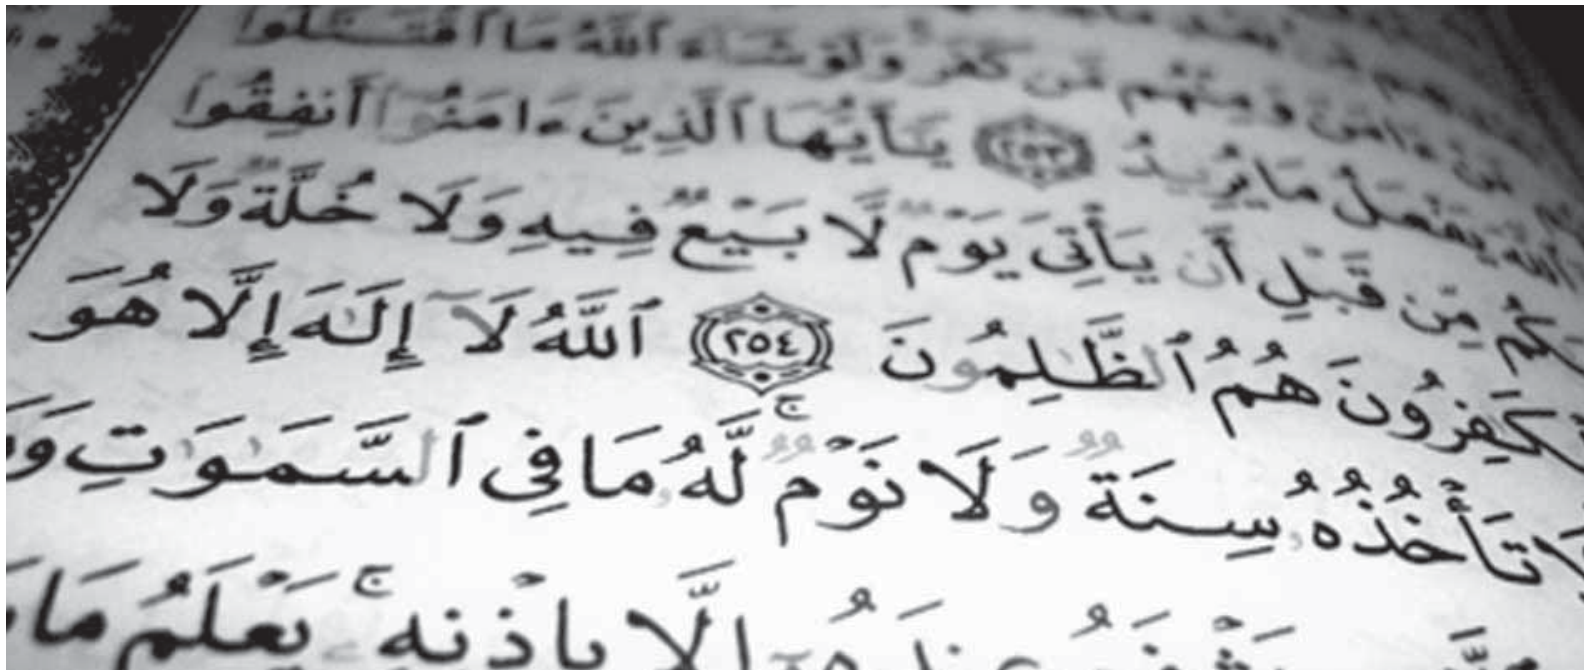 وَلَوْ شَاءَ ٱللَّهُ مَا ٱقْتَتَلُوا۟
مَّنْ ءَامَنَ وَمِنْهُم مَّن كَفَرَ
ٱللَّهَ يَفْعَلُ مَا يُرِيدُ ٢٥٣ يَـٰٓأَيُّهَا ٱلَّذِينَ ءَامَنُوٓا۟ أَنفِقُوا۟
مِّن قَبْلِ أَن يَأْتِىَ يَوْمٌ لَّا بَيْعٌ فِيهِ وَلَا خُلَّةٌ وَلَا
هُمُ ٱلظَّـٰلِمُونَ ٢٥٤ ٱللَّهُ لَآ إِلَـٰهَ إِلَّا هُوَ
تَأْخُذُهُۥ سِنَةٌ وَلَا نَوْمٌ ۚ لَّهُۥ مَا فِى ٱلسَّمَـٰوَٰتِ
إِلَّا بِإِذْنِهِۦ ۚ يَعْلَمُ مَا